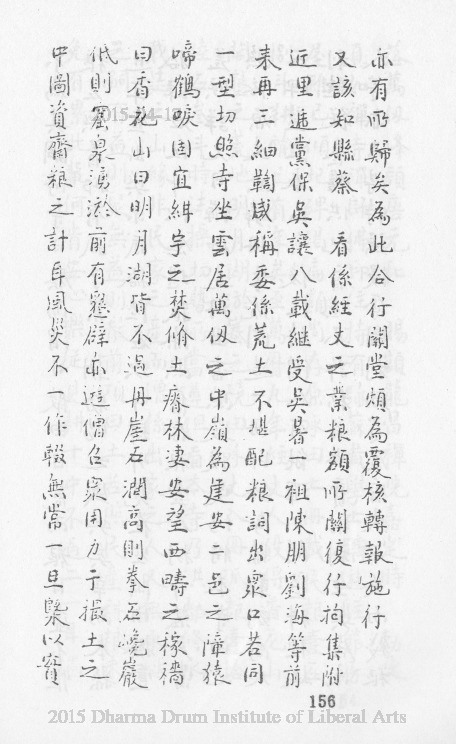 亦有所歸矣為此合行關堂煩為覆核轉報施行
又該知縣蔡　看係經丈之業粮額所關復行拘集附
近里遞黨保吳讓八戴継受吳暑　祖陳朋劉海等前
来再三細鞫咸稱委係荒土不堪配粮詞出衆口若同
一型切照寺坐雲居萬仭之中嶺為建安二邑之障猿
啼鶴唳固宜緝宇之焚脩土瘠林凄安望西疇之稼穡
曰香花山曰明月湖皆不過丹崖石澗高則拳石巉巖
低則窟泉湧淤前有嶷辟亦遊僧召衆用力于撮土之
中圖資齋粮之計耳風災不一作輟無常一旦槩以實
156
2015-04-13
2015 Dharma Drum Institute of Liberal Arts